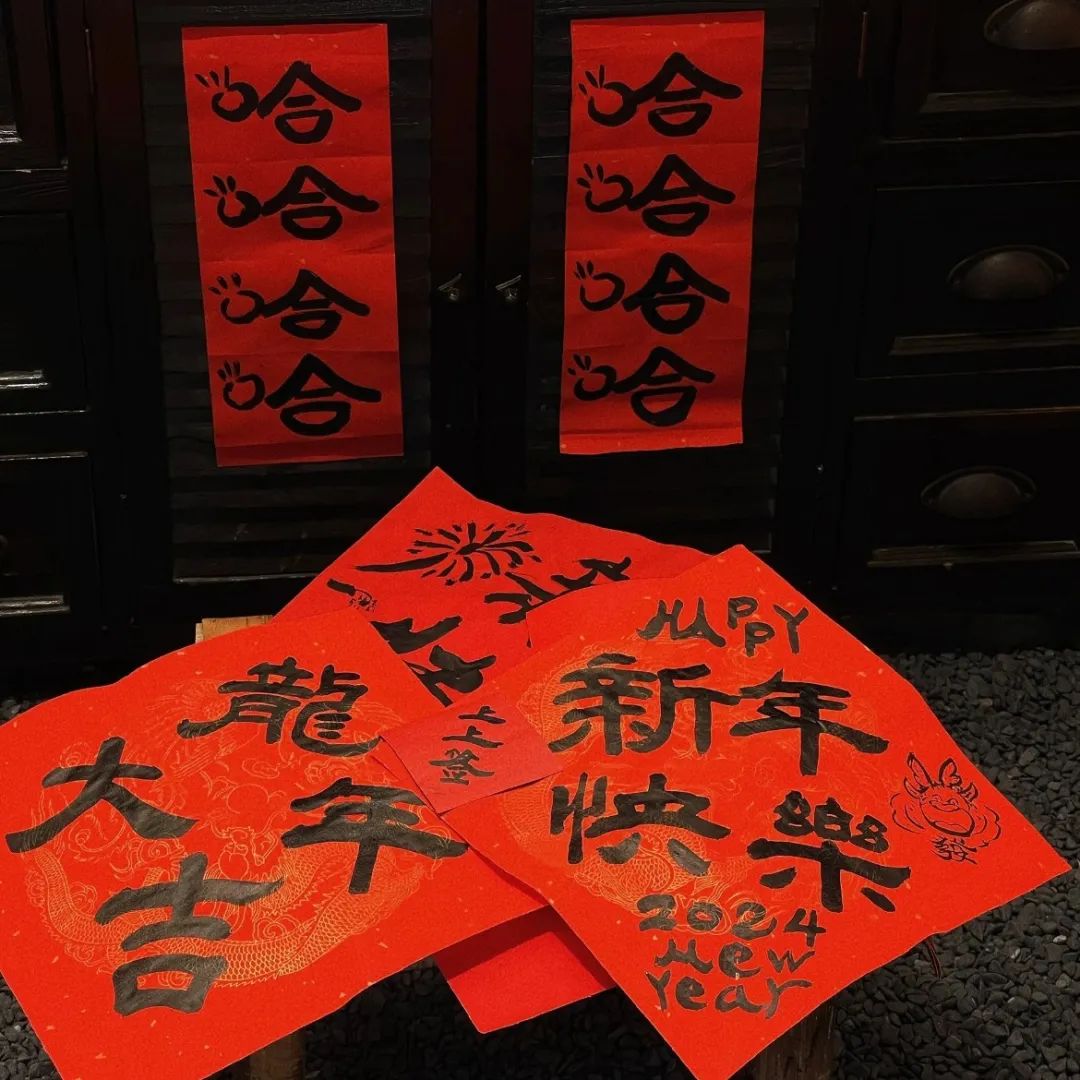 哈
哈
哈
哈
哈
哈
哈
哈
龍年
大吉
上上签
HAPPY
新年
快樂
發
2024
New
Year